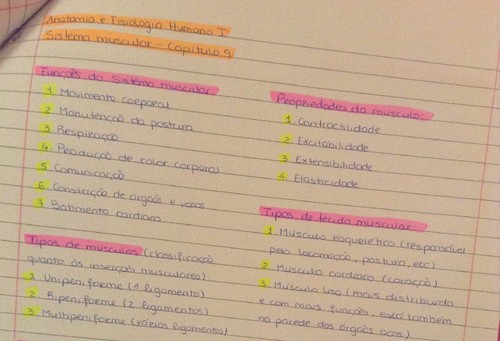 Anatomia e Fisiologia Humana I
Sistema muscular - Capítulo 9
Funções do sistema muscular
1 Movimento corporal
2 Manutenção da postura
3 Respiração
4 Produção de calor corporal
5 Comunicação
6 Constrição de órgãos e vasos
7 Batimento cardíaco
Tipos de músculos (classificação
quanto às inserções musculares)
1 Unipeniforme (1 ligamento)
2 Bipeniforme (2 ligamentos)
3 Multipeniforme (vários ligamentos)
Propriedades do músculo
1 Contractilidade
2 Excitabilidade
3 Extensibilidade
4 Elasticidade
Tipos de tecido muscular
1 Músculo esquelético (responsável
pela locomoção, postura, etc)
2 Músculo cardíaco (coração)
3 Músculo liso (mais distribuído
e com mais funções, está também
na parede dos órgãos ocos)